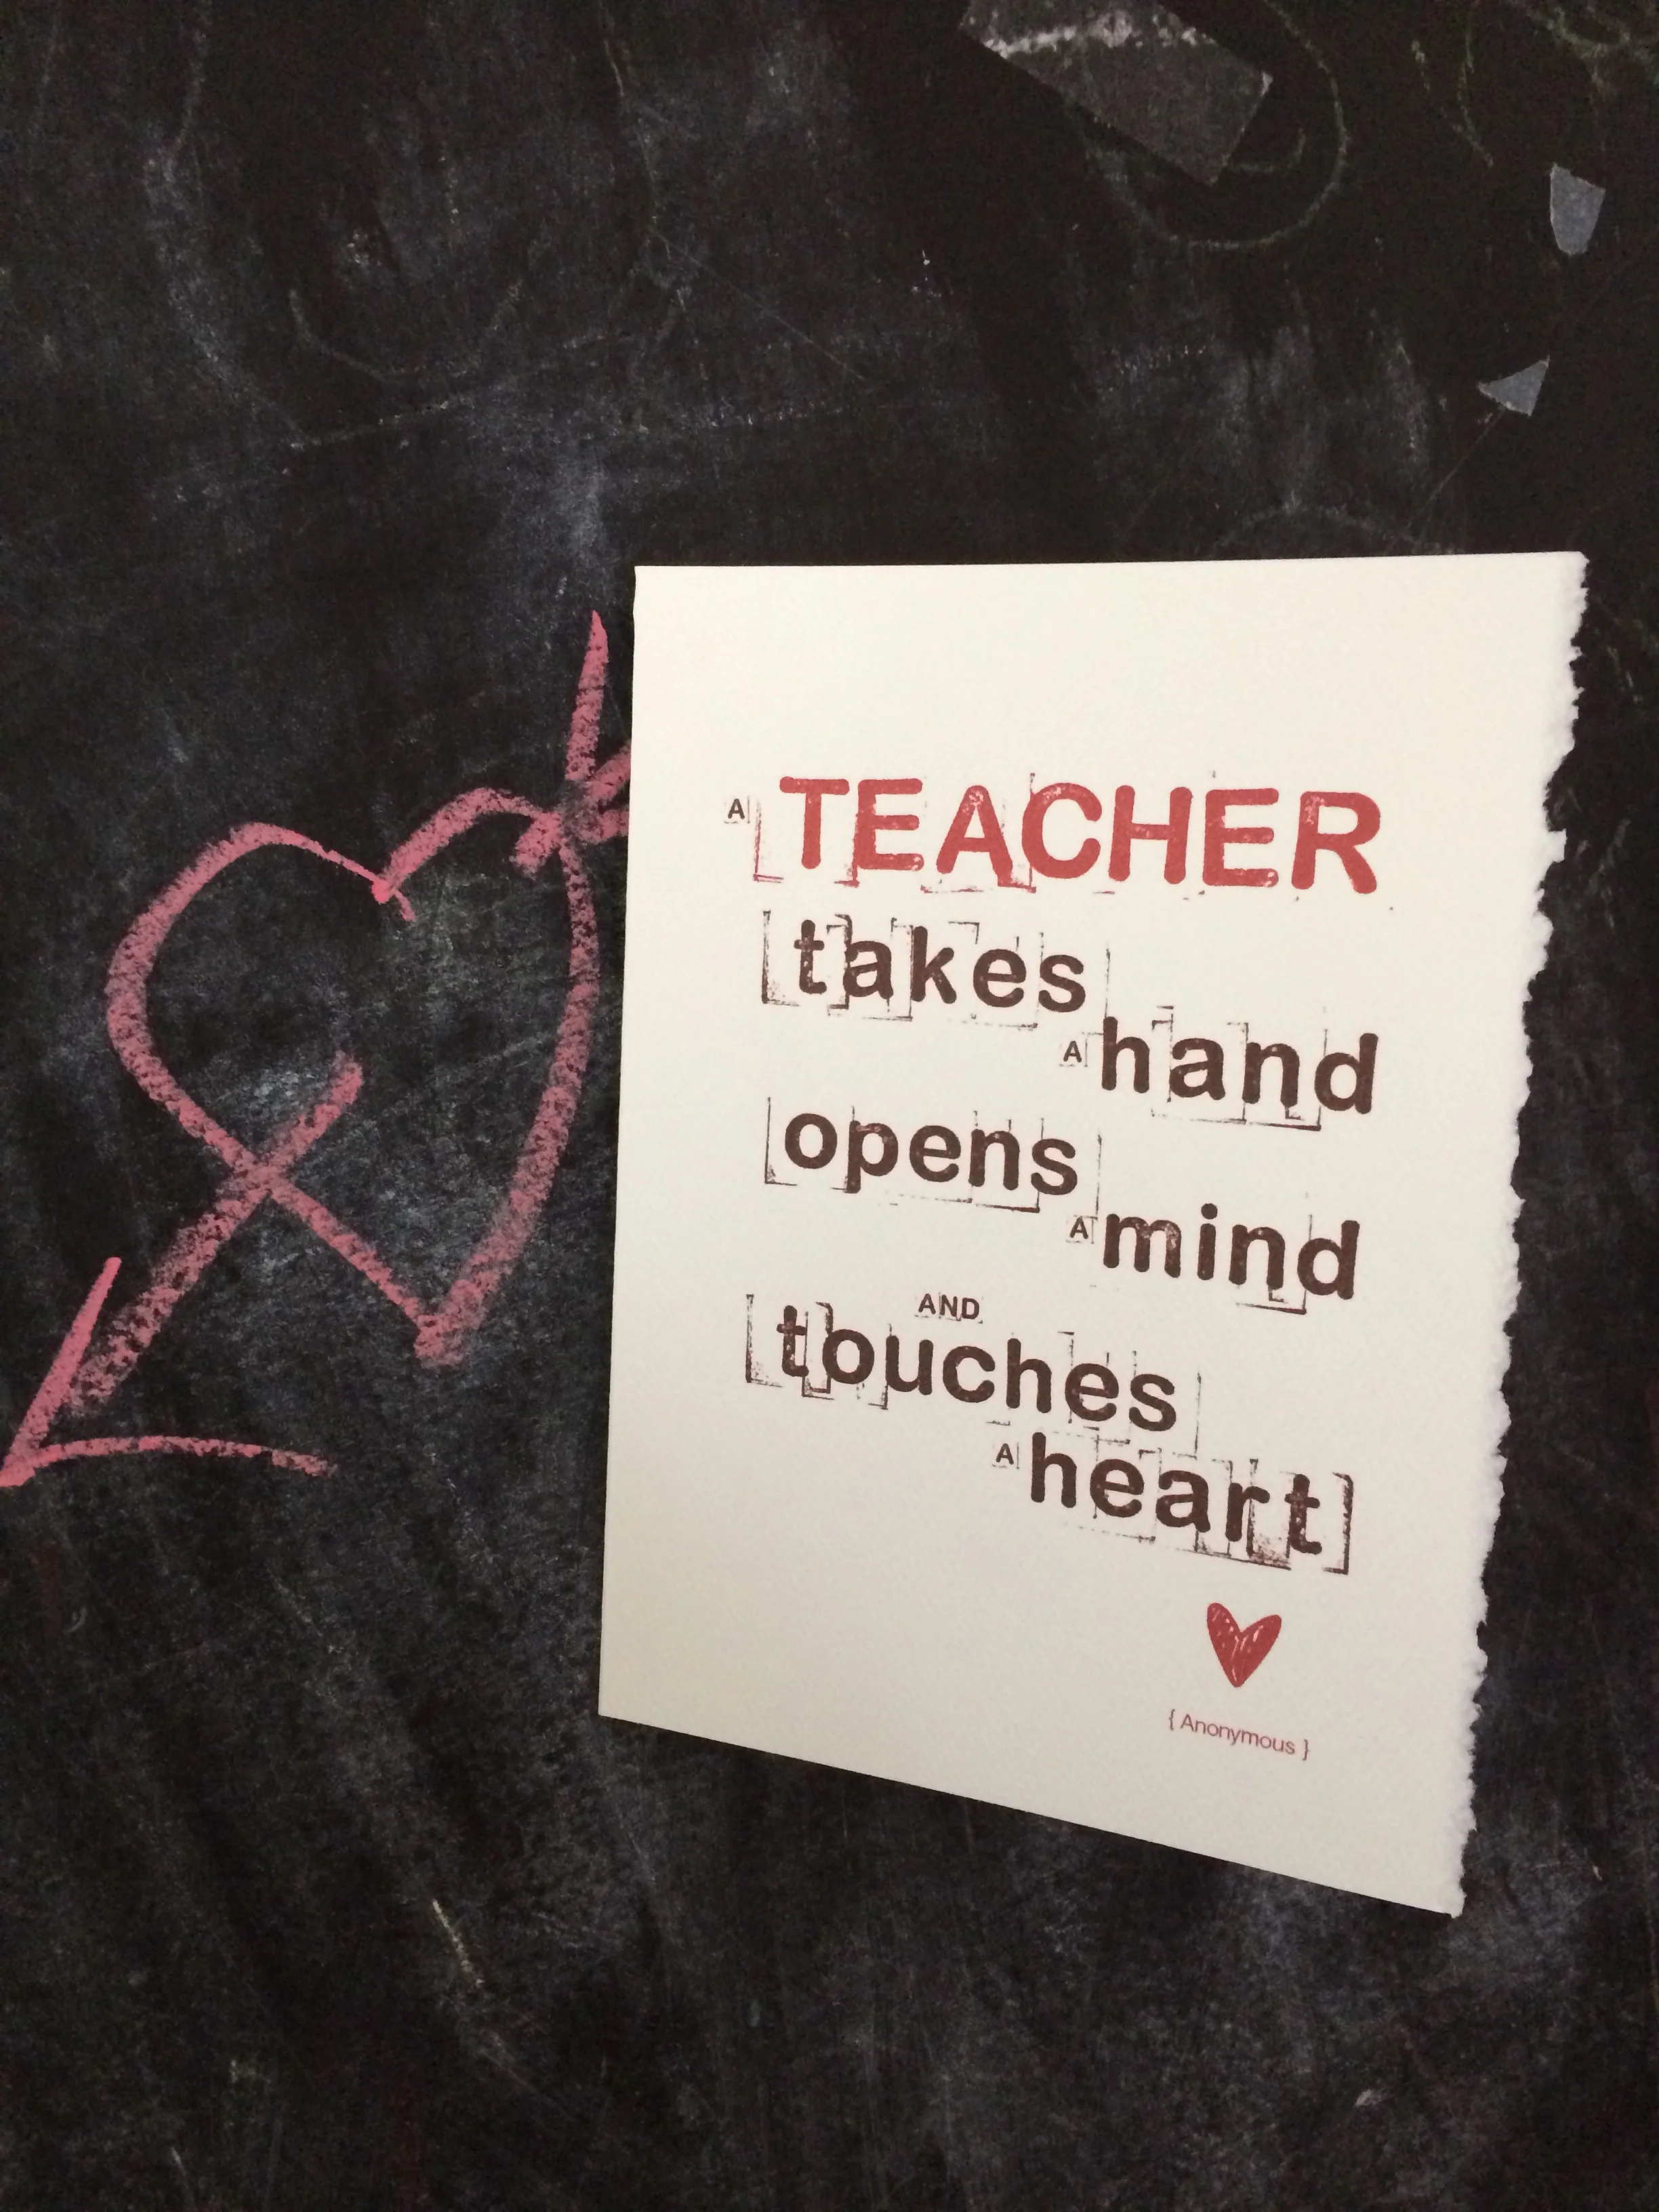 A TEACHER
takes
A hand
opens
A mind
AND
touches
A heart]
{ Anonymous }